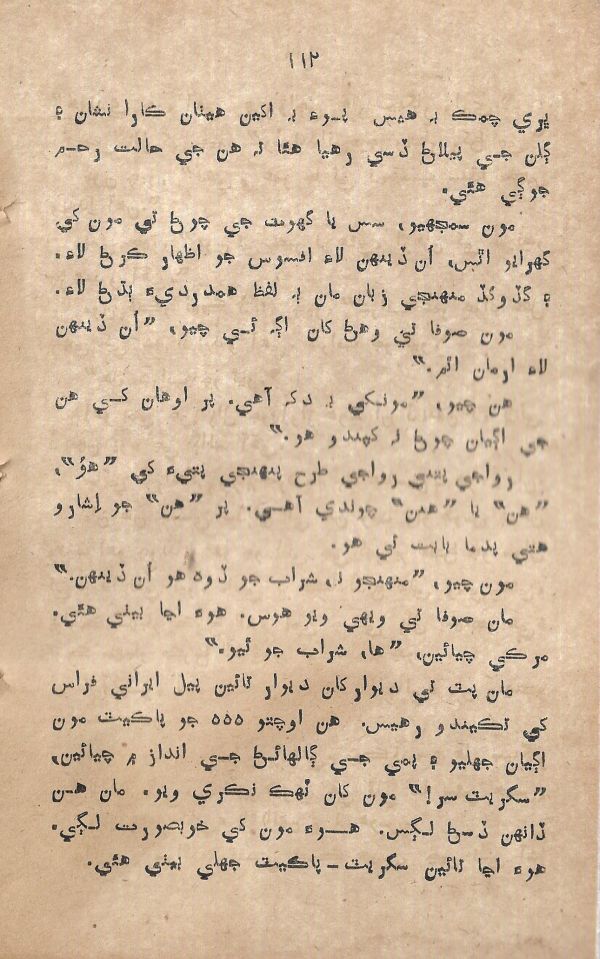 ١١٢
ڀري چمڪ بہ هيس پـوءِ بہ اکين هيٺان ڪارا نشان ۽
ڳلن جـي پيلاڻ ڏسي رهيا هئا تہ هن جي حالت رحـم
جوڳي هئي.
مون سمجهيو، سس يا گهوٽ جي چوڻ تي مون کي
گهرايو اٿس، اُن ڏينهن لاءِ افسوس جو اظهار ڪرڻ لاءِ.
۽ گڏوگڏ منهنجي زبان مان بہ لفظ همدرديءَ ٻڌڻ لاءِ.
مون صوفا تي وهڻ کان اڳہ ئـي چيو، ”اُن ڏينهن
لاءِ ارمان اٿم.“
هن چيو، ”مونکي بہ دک آهي. پر اوهان کـي هن
جي اڳيان چوڻ نہ کپندو هو.“
رواجي پتني رواجي طرح پنهنجي پتيءَ کي ”هُو“،
”هن“ يا ”هنن“ چوندي آهـي. پر ”هن“ جو اِشارو
هتي پدما بابت ئي هو.
مون چيو، ”منهنجو نہ، شراب جو ڏوہ هو اُن ڏينهن.“
مان صوفا تي ويهي ويو هوس. هوءَ اڃا بيٺي هئي.
مرڪي چيائين، ”ها، شراب جو ئيو.“
مان پٽ تي ديوار کان ديوار تائين پيل ايراني فراس
کي تڪيندو رهيس. هن اوچتو ٥٥٥ جو پاڪيٽ مون
اڳيان جهليو ۽ پمي جـي ڳالهائڻ جـي انداز ۾ چيائين،
”سگريٽ سر!“ مون کان ٽهڪ نڪري ويو. مان هـن
ڏانهن ڏسڻ لـڳس. هـــوءَ مون کي خوبصورت لـڳي.
هوءَ اڃا تائين سگريٽ ــ پاڪيٽ جهلي بيٺي هئي.